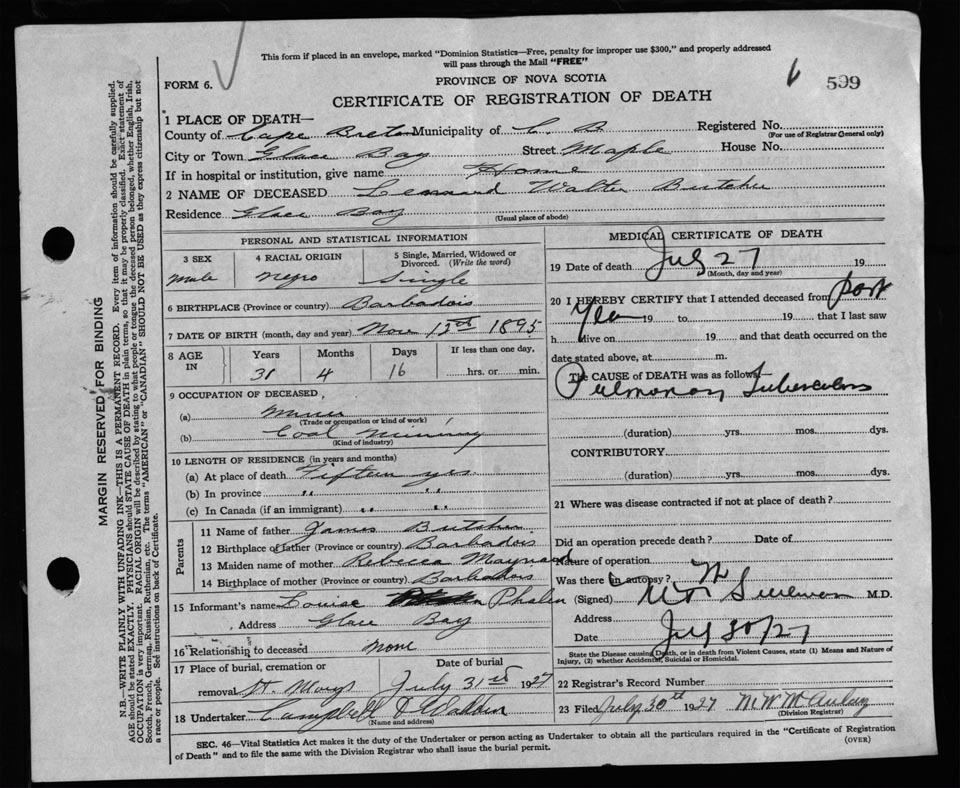 This form if placed in an envelope, marked "Dominion Statistics—Free, penalty for improper use $300," and properly addressed
will pass through the Mail "FREE"
FORM 6.
PROVINCE OF NOVA SCOTIA
599
CERTIFICATE OF REGISTRATION OF DEATH
1 PLACE OF DEATH—
County of Cape Breton Municipality of C. B Registered No.
(For use of Registrar General only)
City or Town Glace Bay Street Maple House No.
If in hospital or institution, give name Home
2 NAME OF DECEASED Leonard Walter Butcher
Residence Glace Bay
(Usual place of abode)
PERSONAL AND STATISTICAL INFORMATION
3 SEX 4 RACIAL ORIGIN 5 Single, Married, Widowed or
Divorced. (Write the word)
male negro Single
6 BIRTHPLACE (Province or country) Barbadois
7 DATE OF BIRTH (month, day and year) Nov 13th 1895
8 AGE IN Years Months Days If less than one day,
31 4 16 hrs. or min.
9 OCCUPATION OF DECEASED
(a) Miner
(Trade or occupation or kind of work)
(b) Coal Mining
(Kind of industry)
10 LENGTH OF RESIDENCE (in years and months)
(a) At place of death Fifteen yrs
(b) In province " "
(c) In Canada (if an immigrant) " "
Parents
11 Name of father James Butcher
12 Birthplace of father (Province or country) Barbadois
13 Maiden name of mother Rebecca Maynard
14 Birthplace of mother (Province or country) Barbadois
15 Informant's name Louise Phalen
Address Glace Bay
16 Relationship to deceased none
17 Place of burial, cremation or Date of burial
removal St. Marys July 31st 1927
18 Undertaker Campbell &
(Name and address)
MEDICAL CERTIFICATE OF DEATH
19 Date of death July 27 19
(Month, day and year)
20 I HEREBY CERTIFY that I attended deceased from past
Year 19 to 19 that I last saw
h alive on 19 and that death occurred on the
date stated above, at m.
The CAUSE of DEATH was as follows—
Pulmonary Tuberculosis
(duration) yrs. mos. dys.
CONTRIBUTORY
(duration) yrs. mos. dys.
21 Where was disease contracted if not at place of death?
Did an operation precede death? Date of
Nature of operation
Was there an autopsy?
(Signed) M.D.
Address
Date July 30/27
State the Disease causing Death, or in death from Violent Causes, state (1) Means and Nature of
Injury, (2) whether Accidental, Suicidal or Homicidal.
22 Registrar's Record Number
23 Filed July 30th 1927
(Division Registrar)
SEC. 46—Vital Statistics Act makes it the duty of the Undertaker or person acting as Undertaker to obtain all the particulars required in the "Certificate of Registration
of Death" and to file the same with the Division Registrar who shall issue the burial permit.
(OVER)
MARGIN RESERVED FOR BINDING
N.B.—WRITE PLAINLY WITH UNFADING INK—THIS IS A PERMANENT RECORD. Every item of information should be carefully supplied.
AGE should be stated EXACTLY. PHYSICIANS should STATE CAUSE OF DEATH in plain terms, so that it may be properly classified. Exact statement of
OCCUPATION is very important. RACIAL ORIGIN will be described by stating to what people or tongue the deceased person belonged, whether English, Irish,
Scotch, French, German, Russian, Ruthenian, etc. The terms "AMERICAN" or "CANADIAN" SHOULD NOT BE USED as they express citizenship but not
a race or people. See instructions on back of Certificate.